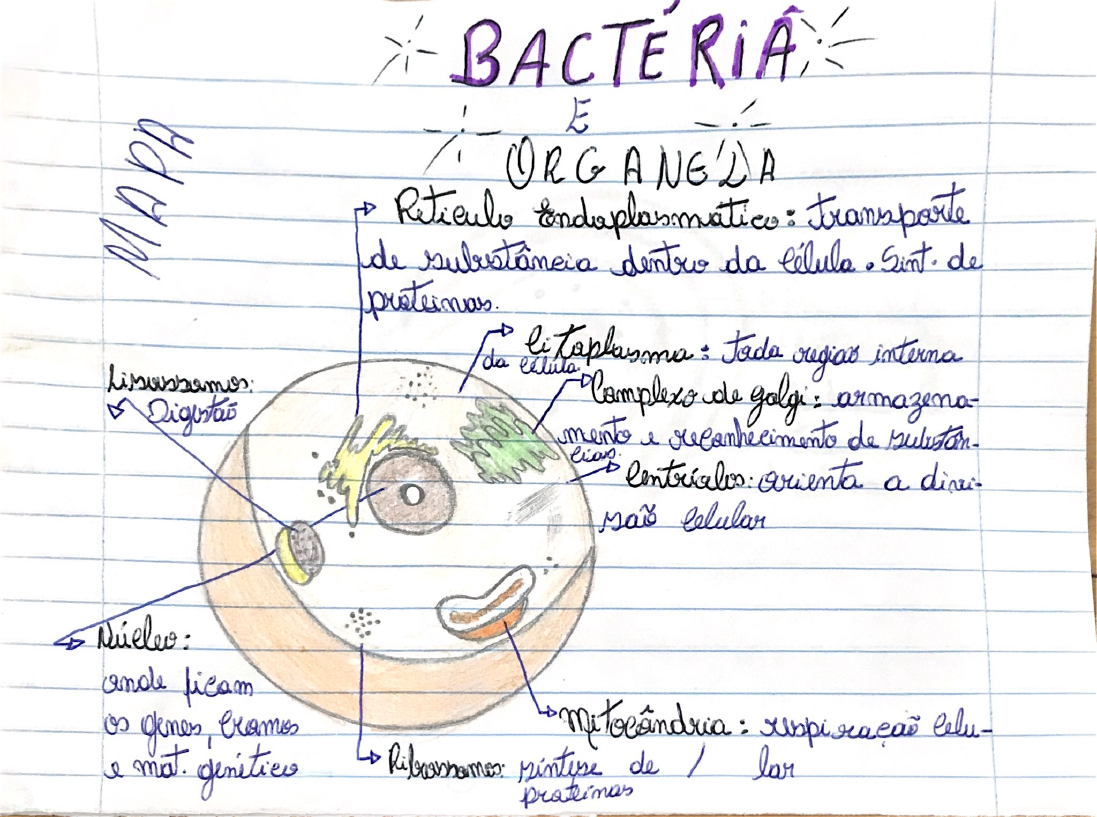 BACTÉRIÂ
E
ORGANELA
MAPA
Retículo Endoplasmático: transporte
de substância dentro da célula. Sint. de
proteínas.
Citoplasma: Toda região interna
da célula.
Complexo de golgi: armazena-
mento e reconhecimento de substân-
cias.
Centríolos: orienta a divi-
são celular
Lisossomos:
Digestão
Núcleo:
onde ficam
os genes, cromos
e mat. genético
Mitocôndria: respiração celu-
lar
Ribossomos: síntese de /
proteínas